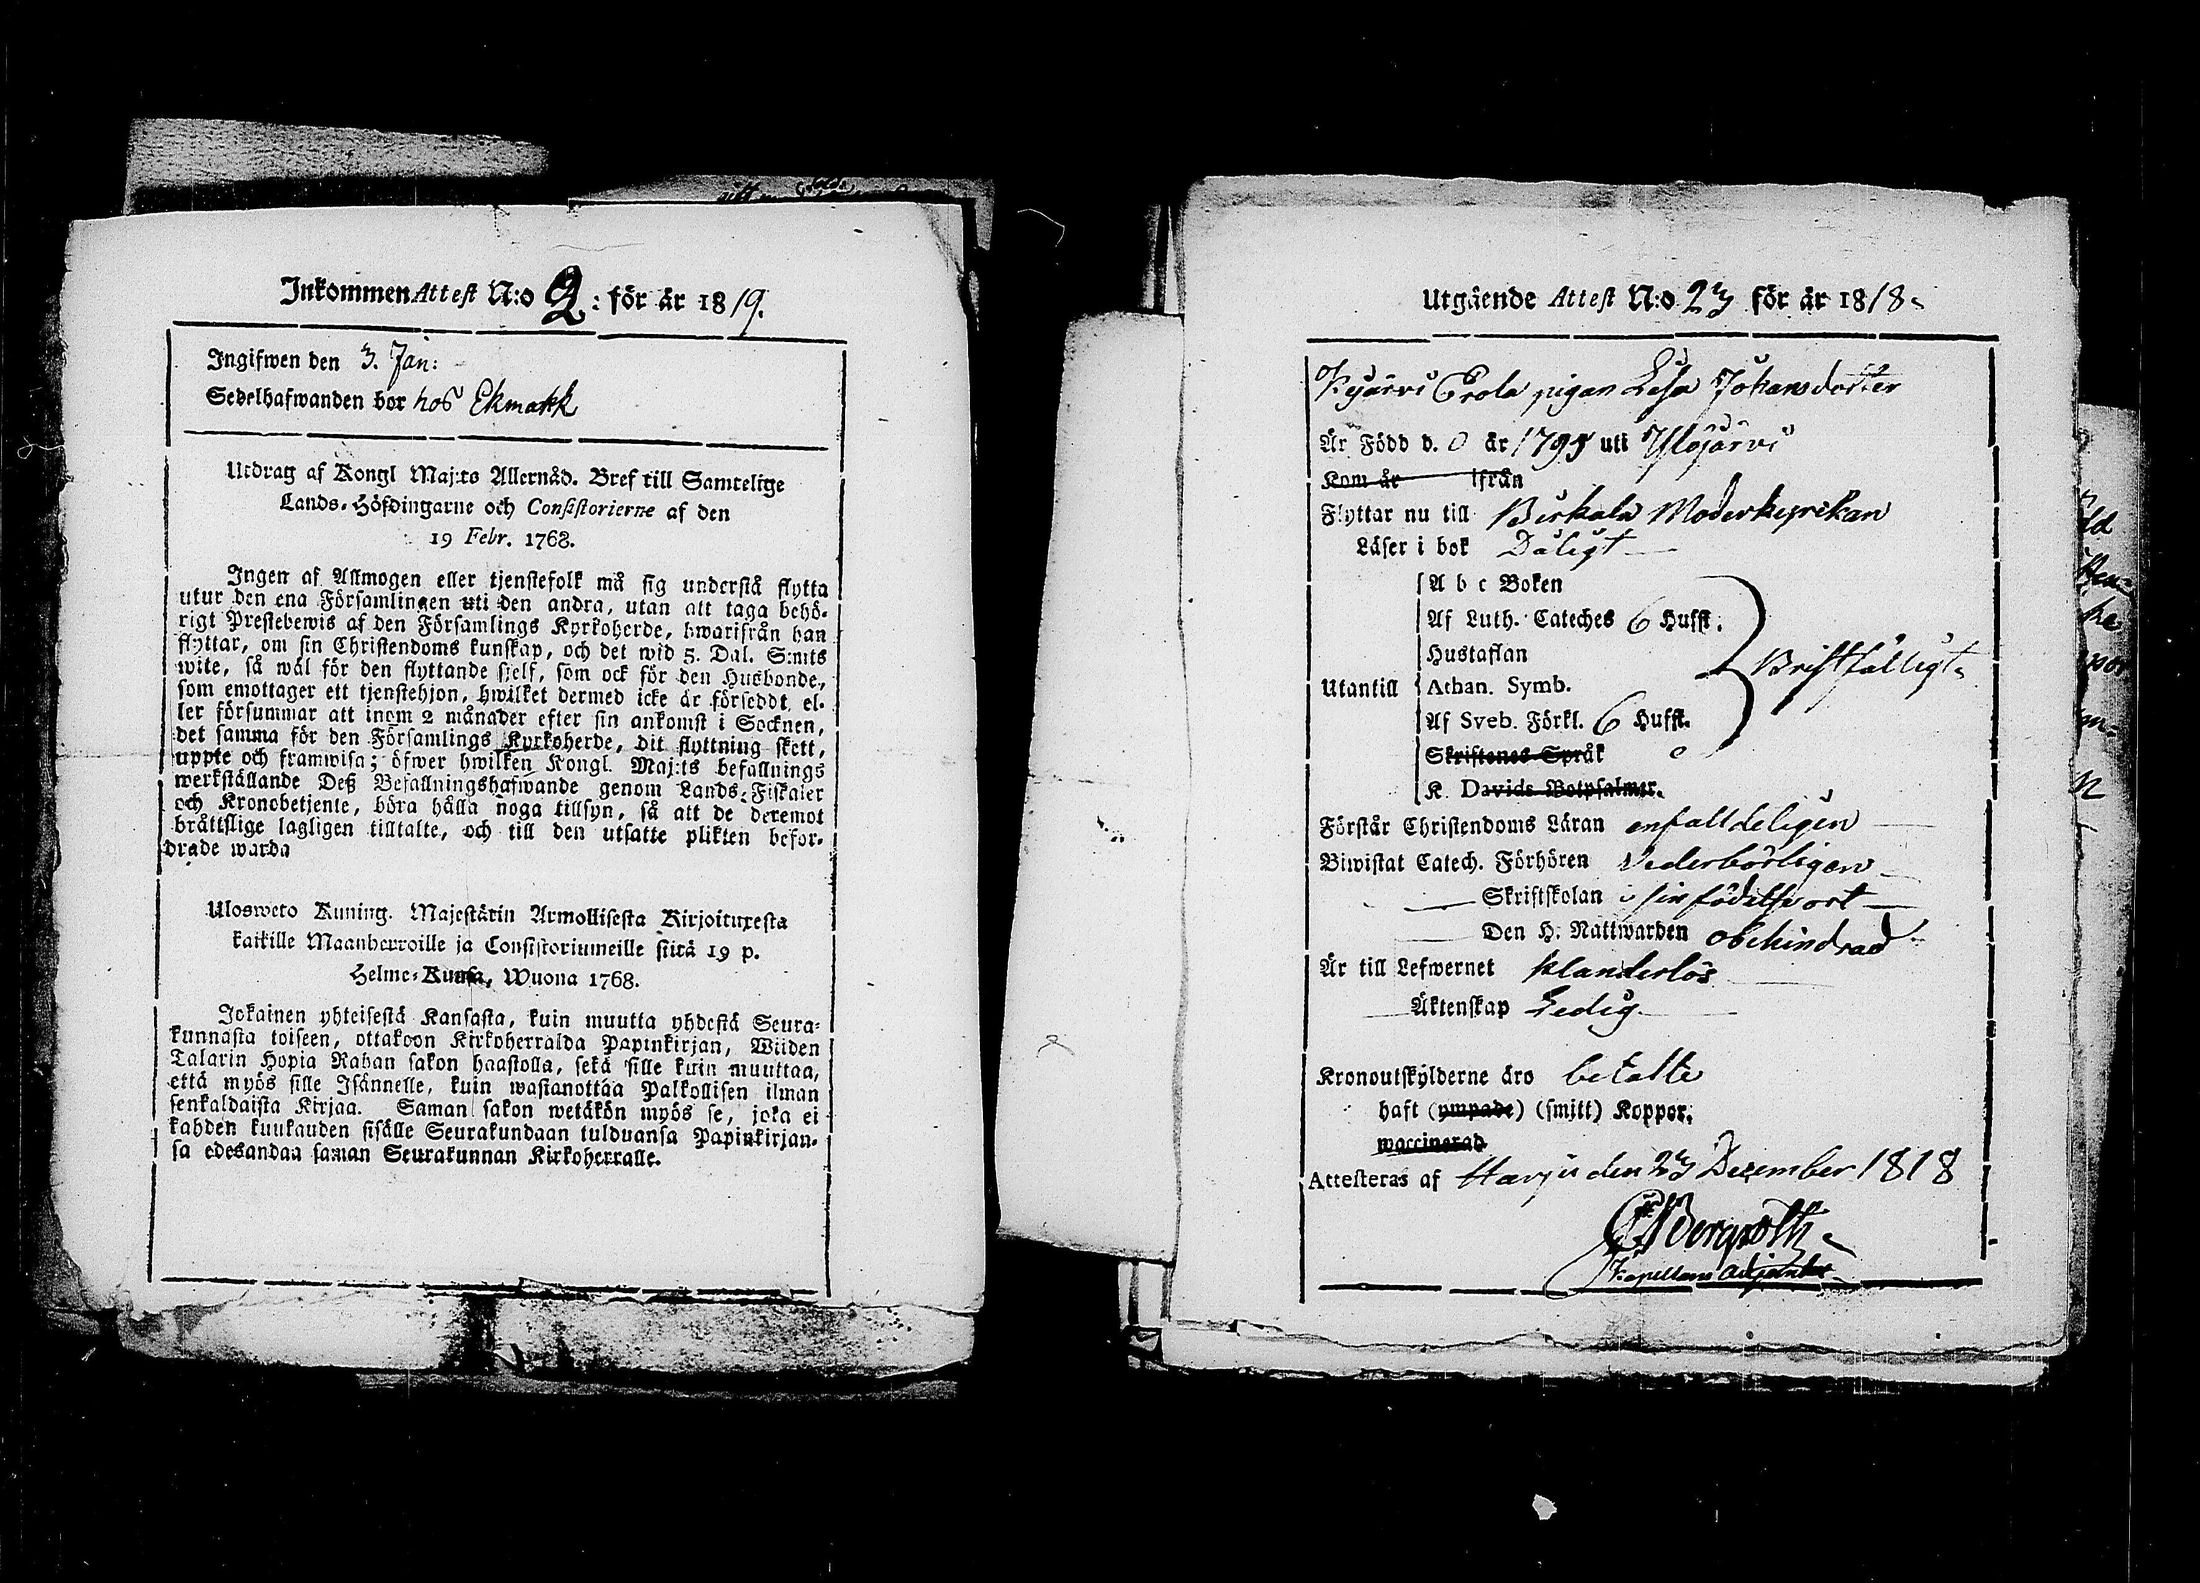 Inkommen Attest N:o 2: för år 1819.
Ingifwen den 3. Jan:
Sedelhafwanden bor hos Ekmark
Utdrag af Kongl Maj:ts Allernåd. Bref till Samtelige
Lands-Höfdingarne och Consistorierne af den
19 Febr. 1768.
Ingen af Allmogen eller tjenstefolk må sig understå flytta
utur den ena Församlingen uti den andra, utan att taga behö-
rigt Prestebewis af den Församlings Kyrkoherde, hwarifrån han
flyttar, om sin Christendoms kunskap, och det wid 5. Dal. S:mts
wite, så wäl för den flyttande sjelf, som ock för den Husbonde,
som emottager ett tjenstehjon, hwilket dermed icke är försedt, el-
ler försummar att inom 2 månader efter sin ankomst i Socknen,
det samma för den Församlings Kyrkoherde, dit flyttning skett,
uppte och framwisa; öfwer hwilken Kongl. Maj:ts befallnings
werkställande Deß Befallningshafwande genom Lands-Fiskaler
och Kronobetjente, böra hålla noga tillsyn, så att de deremot
bråttslige lagligen tilltalte, och till den utsatte plikten befor-
drade warda
Ulosweto Kuning. Majestätin Armollisesta Kirjoituxesta
kaikille Maanherroille ja Consistoriumeille siitä 19 p.
Helme-Kuusa, Wuona 1768.
Jokainen yhteisestä Kansasta, kuin muutta yhdestä Seura-
kunnasta toiseen, ottakoon Kirkoherralda Papinkirjan, Wiiden
Talarin Hopia Rahan sakon haastolla, sekä sille kuin muuttaa,
että myös sille Isännelle, kuin wastanottaa Palkollisen ilman
senkaldaista Kirjaa. Saman sakon wetäkön myös se, joka ei
kahden kuukauden sisälle Seurakundaan tulduansa Papinkirjan-
sa edesandaa saman Seurakunnan Kirkoherralle.
Utgående Attest N:o 23 för år 1818.
Kyärvi Erola pigan Lisa Johansdotter
Är Född d. 0 år 1795 uti Ylöjärvi
Kom år ifrån
Flyttar nu till Birkala Moderkyrkan
Läser i bok Dåligt
A b c Boken
Af Luth. Cateches 6 Hufst.
Hustaflan
Utantill Athan. Symb. Bristfälligt
Af Sveb. Förkl. 6 Hufst.
Skriftenes Språk
K. Davids Botpsalmer.
Förstår Christendoms Läran enfalldeligen
Biwistat Catech. Förhören Vederbörligen
Skriftskolan i sin födelseort
Den H. Nattwarden obehindrad
Är till Lefwernet klanderlös
Äktenskap Ledig
Kronoutskylderne äro betalte
haft (ympade) (smitt) Koppor.
waccinerad
Attesteras af Harju den 23 December 1818
Bergroth
Kapellans Adjunct